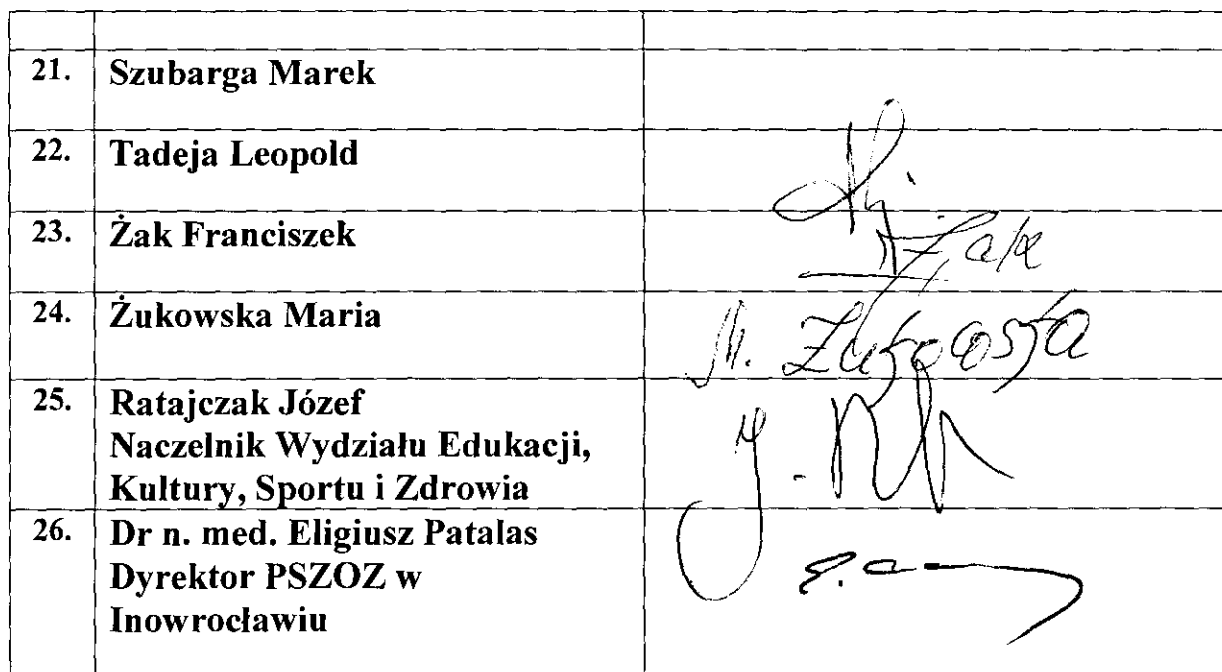 21. Szubarga Marek
22. Tadeja Leopold
23. Żak Franciszek
Żak
24. Żukowska Maria
M. Żukowska
25. Ratajczak Józef
Naczelnik Wydziału Edukacji,
Kultury, Sportu i Zdrowia
J.
26. Dr n. med. Eligiusz Patalas
Dyrektor PSZOZ w
Inowrocławiu